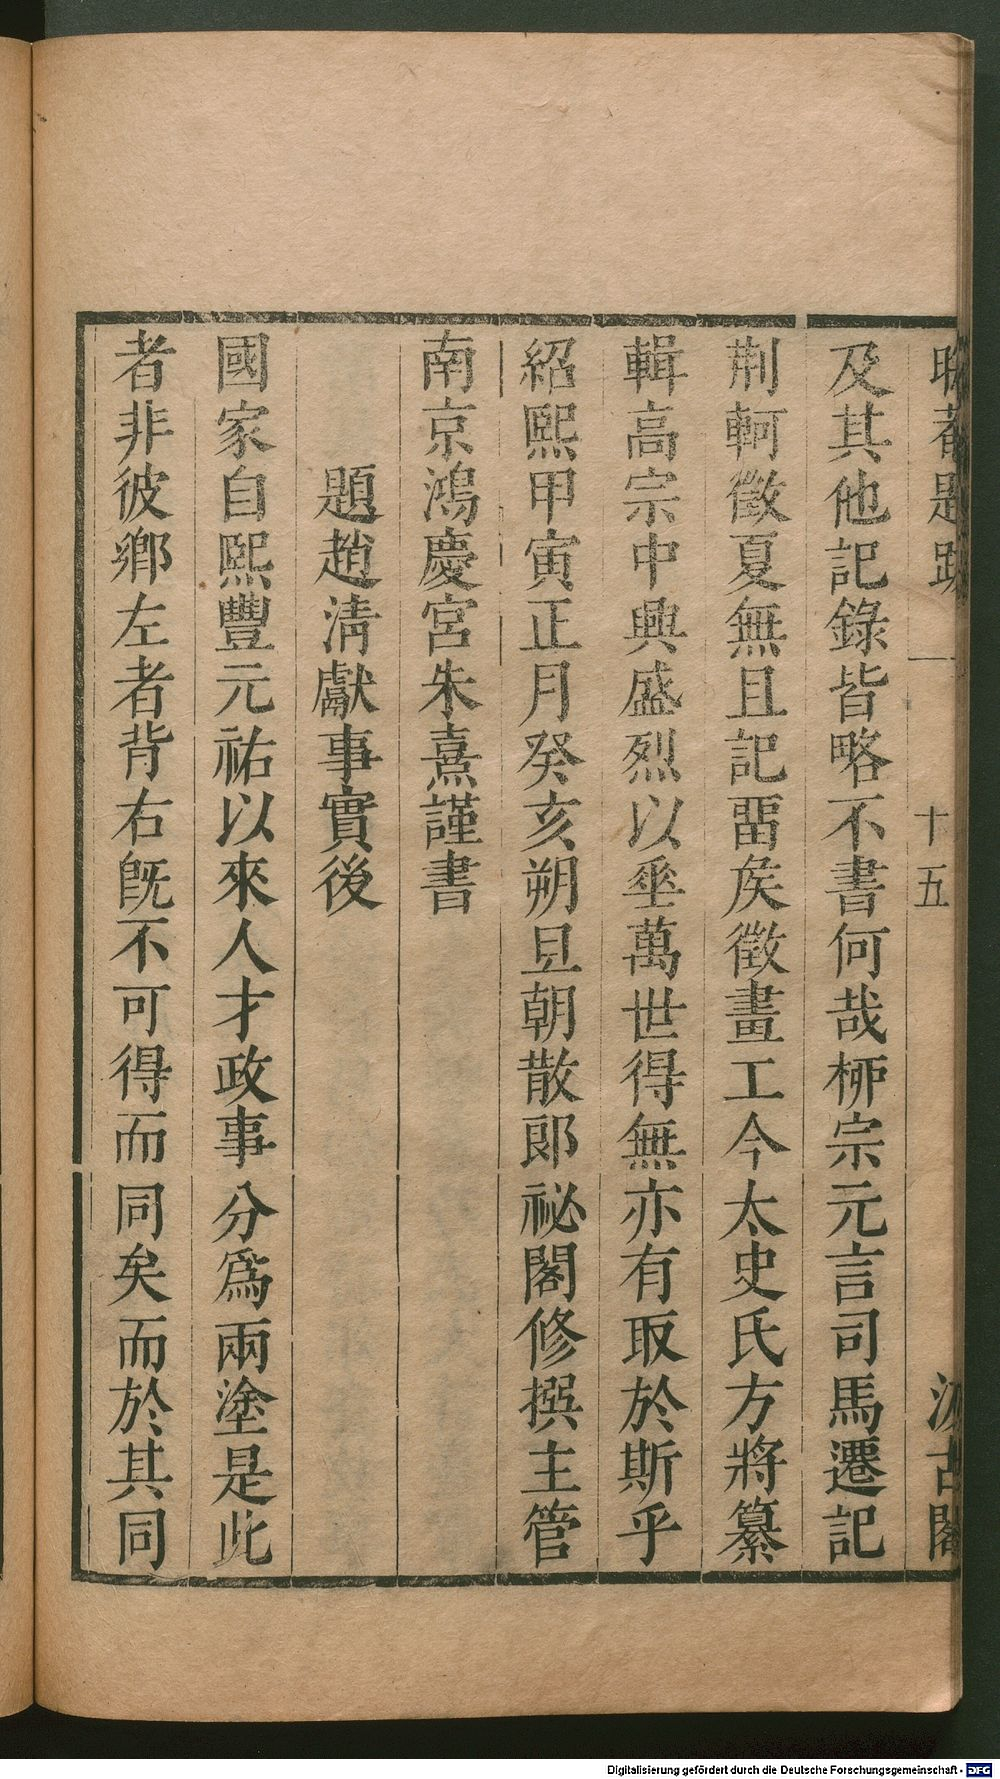 及其他記錄皆略不書何哉桺宗元言司馬遷記
荆軻徵夏無且記畱矦徵畫工今太史氏方將纂
輯高宗中興盛烈以垂萬世得無亦有取於斯乎
紹熙甲寅正月癸亥朔旦朝散郎祕閣修撰主管
南京鴻慶宮朱熹謹書
題趙淸獻事實後
國家自熙豐元祐以來人才政事分爲兩塗是此
者非彼鄉左者背右旣不可得而同矣而於其同
十五
汲古閣
Digitalisierung gefördert durch die Deutsche Forschungsgemeinschaft - DFG